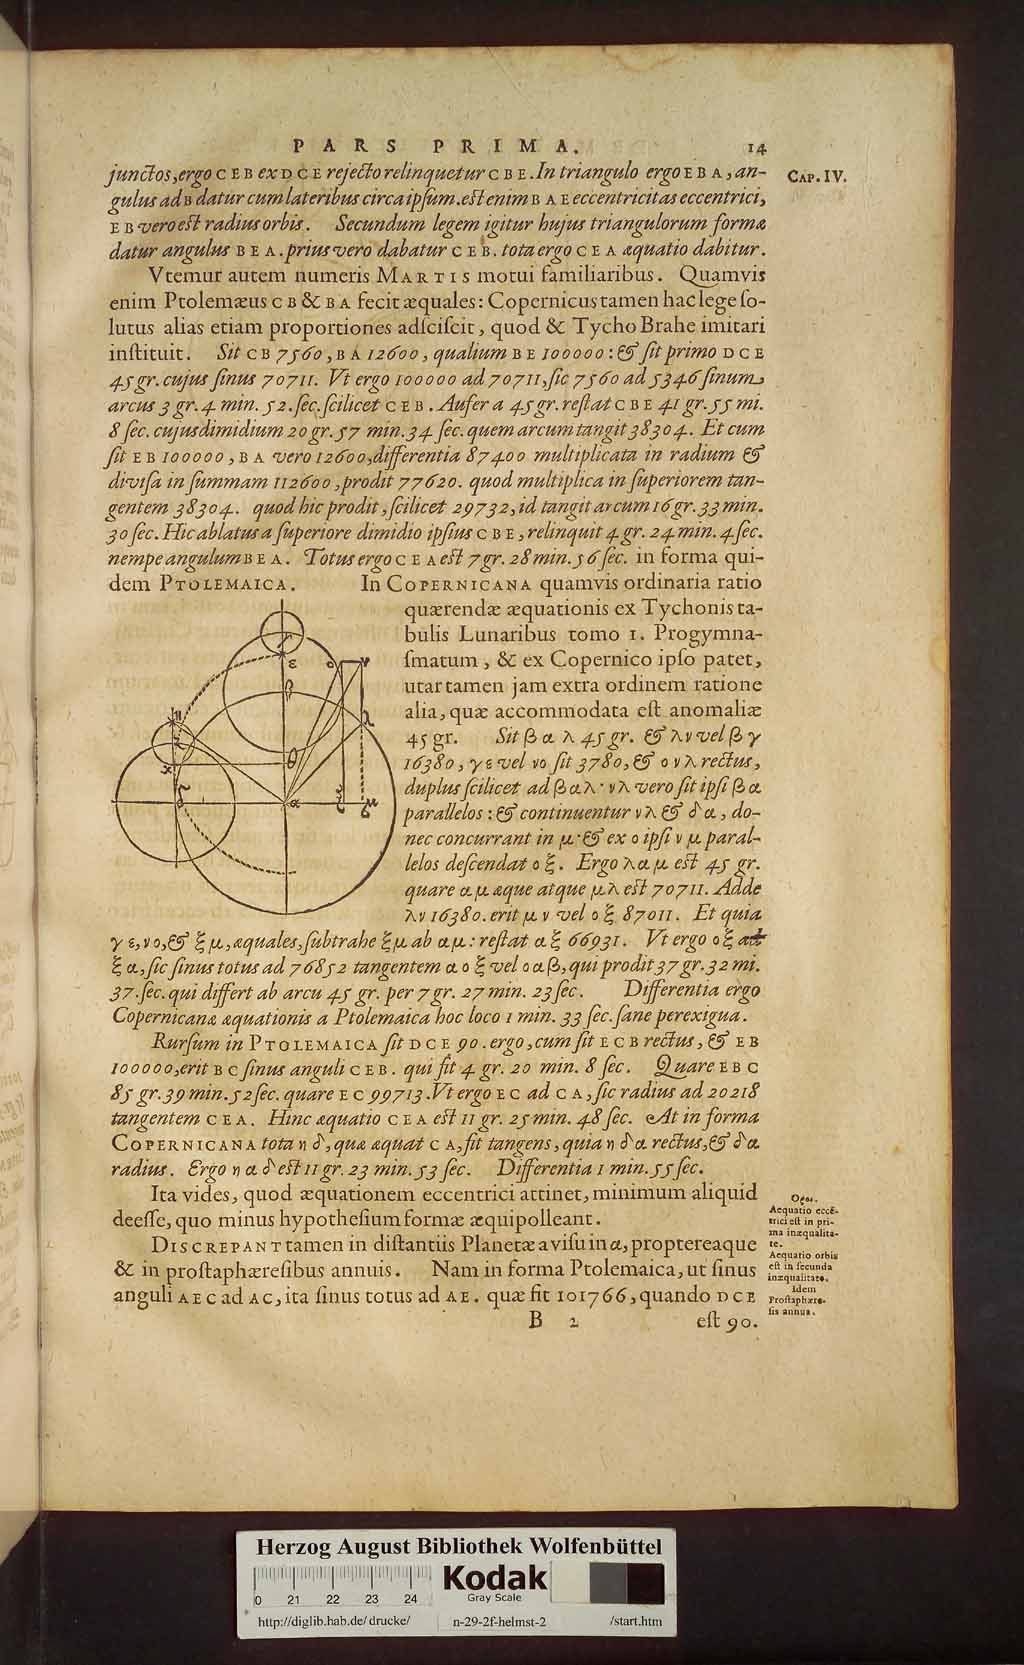 PARS PRIMA. 14
junctos, ergo CEB ex DCE rejecto relinquetur CBE. In triangulo ergo EBA, an-
CAP. IV.
gulus ad B datur cum lateribus circa ipſum. eſt enim BAE eccentricitas eccentrici,
EB vero eſt radius orbis. Secundum legem igitur hujus triangulorum formæ
datur angulus BEA. prius vero dabatur CEB. tota ergo CEA æquatio dabitur.
Vtemur autem numeris MARTIS motui familiaribus. Quamvis
enim Ptolemæus CB & BA fecit æquales: Copernicus tamen hac lege ſo-
lutus alias etiam proportiones adſciſcit, quod & Tycho Brahe imitari
inſtituit. Sit CB 7560, BA 12600, qualium BE 100000: & ſit primo DCE
45 gr. cujus ſinus 70711. Vt ergo 100000 ad 70711, ſic 7560 ad 5346 ſinum
arcus 3 gr. 4 min. 52. ſec. ſcilicet CEB. Aufer a 45 gr. reſtat CBE 41 gr. 55 mi.
8 ſec. cujus dimidium 20 gr. 57 min. 34 ſec. quem arcum tangit 38304. Et cum
ſit EB 100000, BA vero 12600, differentia 87400 multiplicata in radium &
diviſa in ſummam 112600, prodit 77620. quod multiplica in ſuperiorem tan-
gentem 38304. quod hic prodit, ſcilicet 29732, id tangit arcum 16 gr. 33 min.
30 ſec. Hic ablatus a ſuperiore dimidio ipſius CBE, relinquit 4 gr. 24 min. 4 ſec.
nempe angulum BEA. Totus ergo CEA eſt 7 gr. 28 min. 56 ſec. in forma qui-
dem PTOLEMAICA. In COPERNICANA quamvis ordinaria ratio
quærendæ æquationis ex Tychonis ta-
bulis Lunaribus tomo 1. Progymna-
ſmatum, & ex Copernico ipſo patet,
utar tamen jam extra ordinem ratione
alia, quæ accommodata eſt anomaliæ
45 gr. Sit β α λ 45 gr. & λν vel β γ
16380, γε vel νο ſit 3780, & ο ν λ rectus,
duplus ſcilicet ad β α λ· νλ vero ſit ipſi β α
parallelos: & continuentur νλ & δ α, do-
nec concurrant in μ· & ex ο ipſi ν μ paral-
lelos deſcendat ο ξ. Ergo λ α μ eſt 45 gr.
quare α μ æque atque μ λ eſt 70711. Adde
λν 16380. erit μ ν vel ο ξ 87011. Et quia
γ ε, ν ο, & ξ μ, æquales, ſubtrahe ξ μ ab α μ: reſtat α ξ 66931. Vt ergo ο ξ ad
ξ α, ſic ſinus totus ad 76852 tangentem α ο ξ vel ο α β, qui prodit 37 gr. 32 mi.
37. ſec. qui differt ab arcu 45 gr. per 7 gr. 27 min. 23 ſec. Differentia ergo
Copernicanæ æquationis a Ptolemaica hoc loco 1 min. 33 ſec. ſane perexigua.
Rurſum in PTOLEMAICA ſit DCE 90. ergo, cum ſit ECB rectus, & EB
100000, erit BC ſinus anguli CEB. qui fit 4 gr. 20 min. 8 ſec. Quare EBC
85 gr. 39 min. 52 ſec. quare EC 99713. Vt ergo EC ad CA, ſic radius ad 20218
tangentem CEA. Hinc æquatio CEA eſt 11 gr. 25 min. 48 ſec. At in forma
COPERNICANA tota η δ, quæ æquat CA, fit tangens, quia η δ α rectus, & δ α
radius. Ergo η α δ eſt 11 gr. 23 min. 53 ſec. Differentia 1 min. 55 ſec.
Ita vides, quod æquationem eccentrici attinet, minimum aliquid
deeſſe, quo minus hypotheſium formæ æquipolleant.
DISCREPANT tamen in diſtantiis Planetæ a viſu in α, proptereaque
& in proſtaphæreſibus annuis. Nam in forma Ptolemaica, ut ſinus
anguli AEC ad AC, ita ſinus totus ad AE. quæ fit 101766, quando DCE
B 2 eſt 90.
Aequatio eccē-
trici eſt in pri-
ma inæqualita-
te.
Aequatio orbis
eſt in ſecunda
inæqualitate.
Idem
Proſtaphære-
ſis annua.
ε
ο
ν
β
η
λ
κ
θ
δ
α
ξ
μ
Herzog August Bibliothek Wolfenbüttel
0 21 22 23 24
Kodak
Gray Scale
http://diglib.hab.de/drucke/ n-29-2f-helmst-2 /start.htm